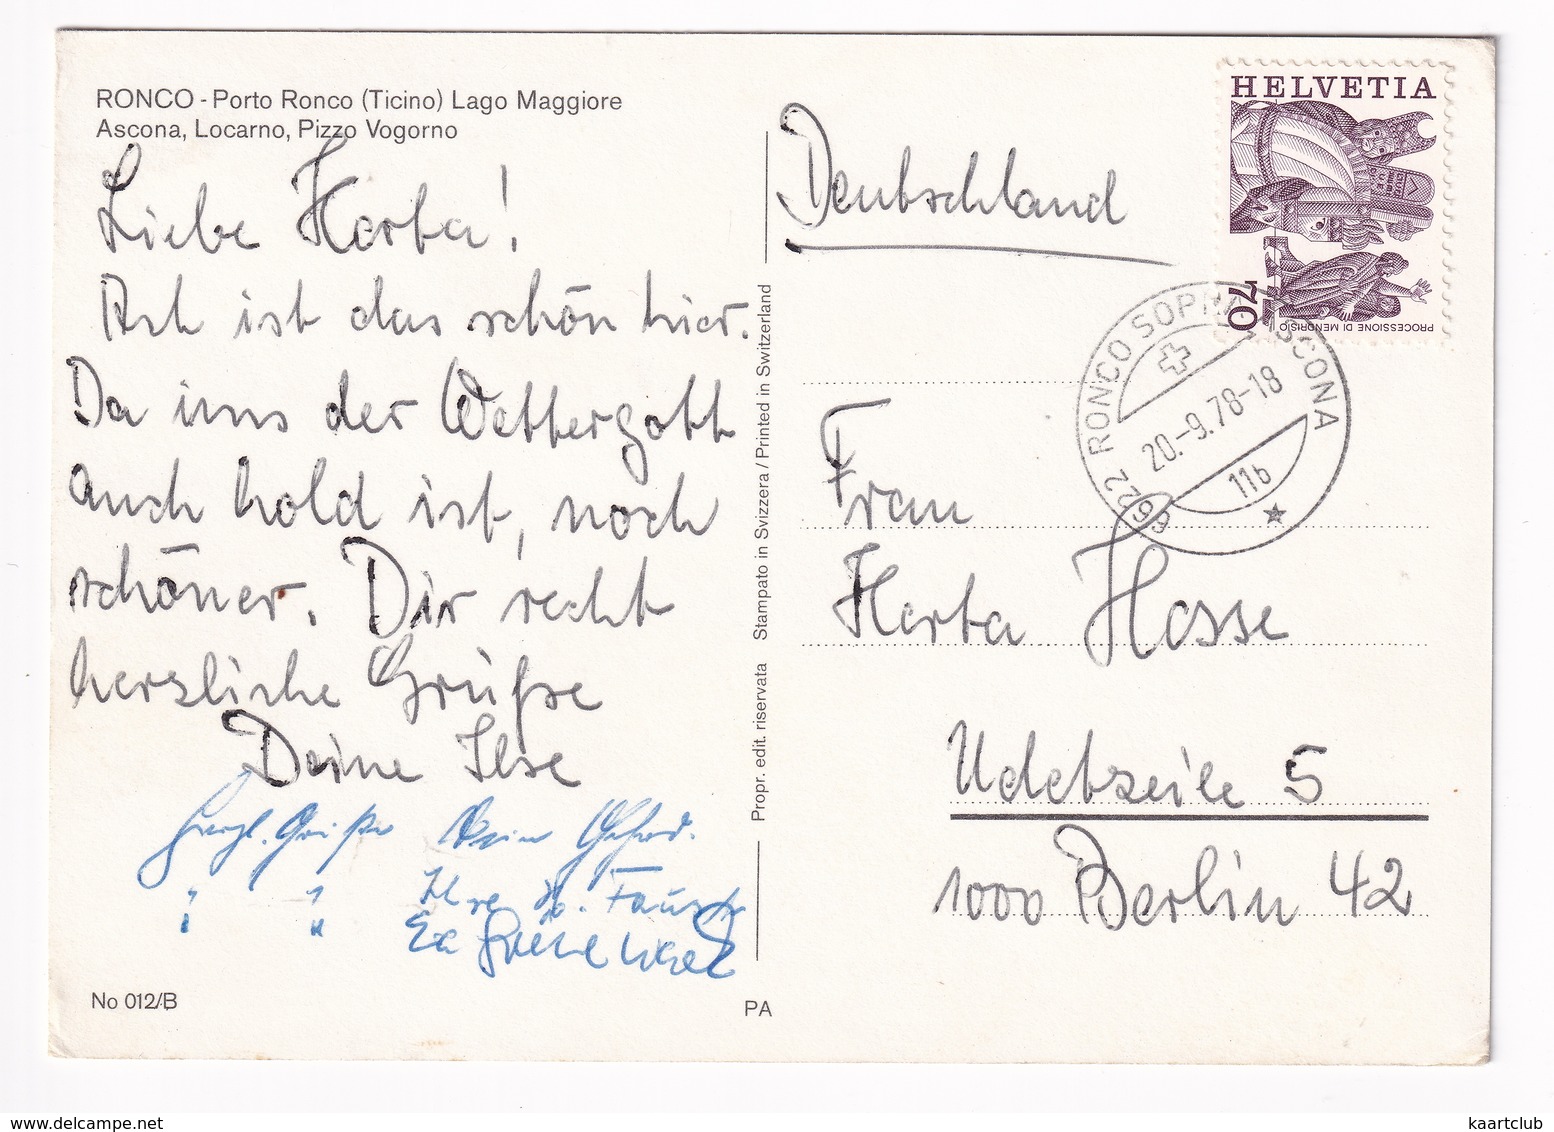 RONCO - Porto Ronco (Ticino) Lago Maggiore
Ascona, Locarno, Pizzo Vogorno
Liebe Herta!
Ach ist das schön hier.
Da uns der Wettergott
auch hold ist, noch
schöner. Dir recht
herzliche Grüße
Deine Ilse
Herzl. Grüße
No 012/B
PA
Propr. edit. riservata Stampato in Svizzera / Printed in Switzerland
Deutschland
HELVETIA
70
PROCESSIONE DI MENDRISIO
6622 RONCO SOPRA ASCONA
20.-9.78-18
11b
Frau
Herta Hosse
Udetzeile 5
1000 Berlin 42
kaartclub